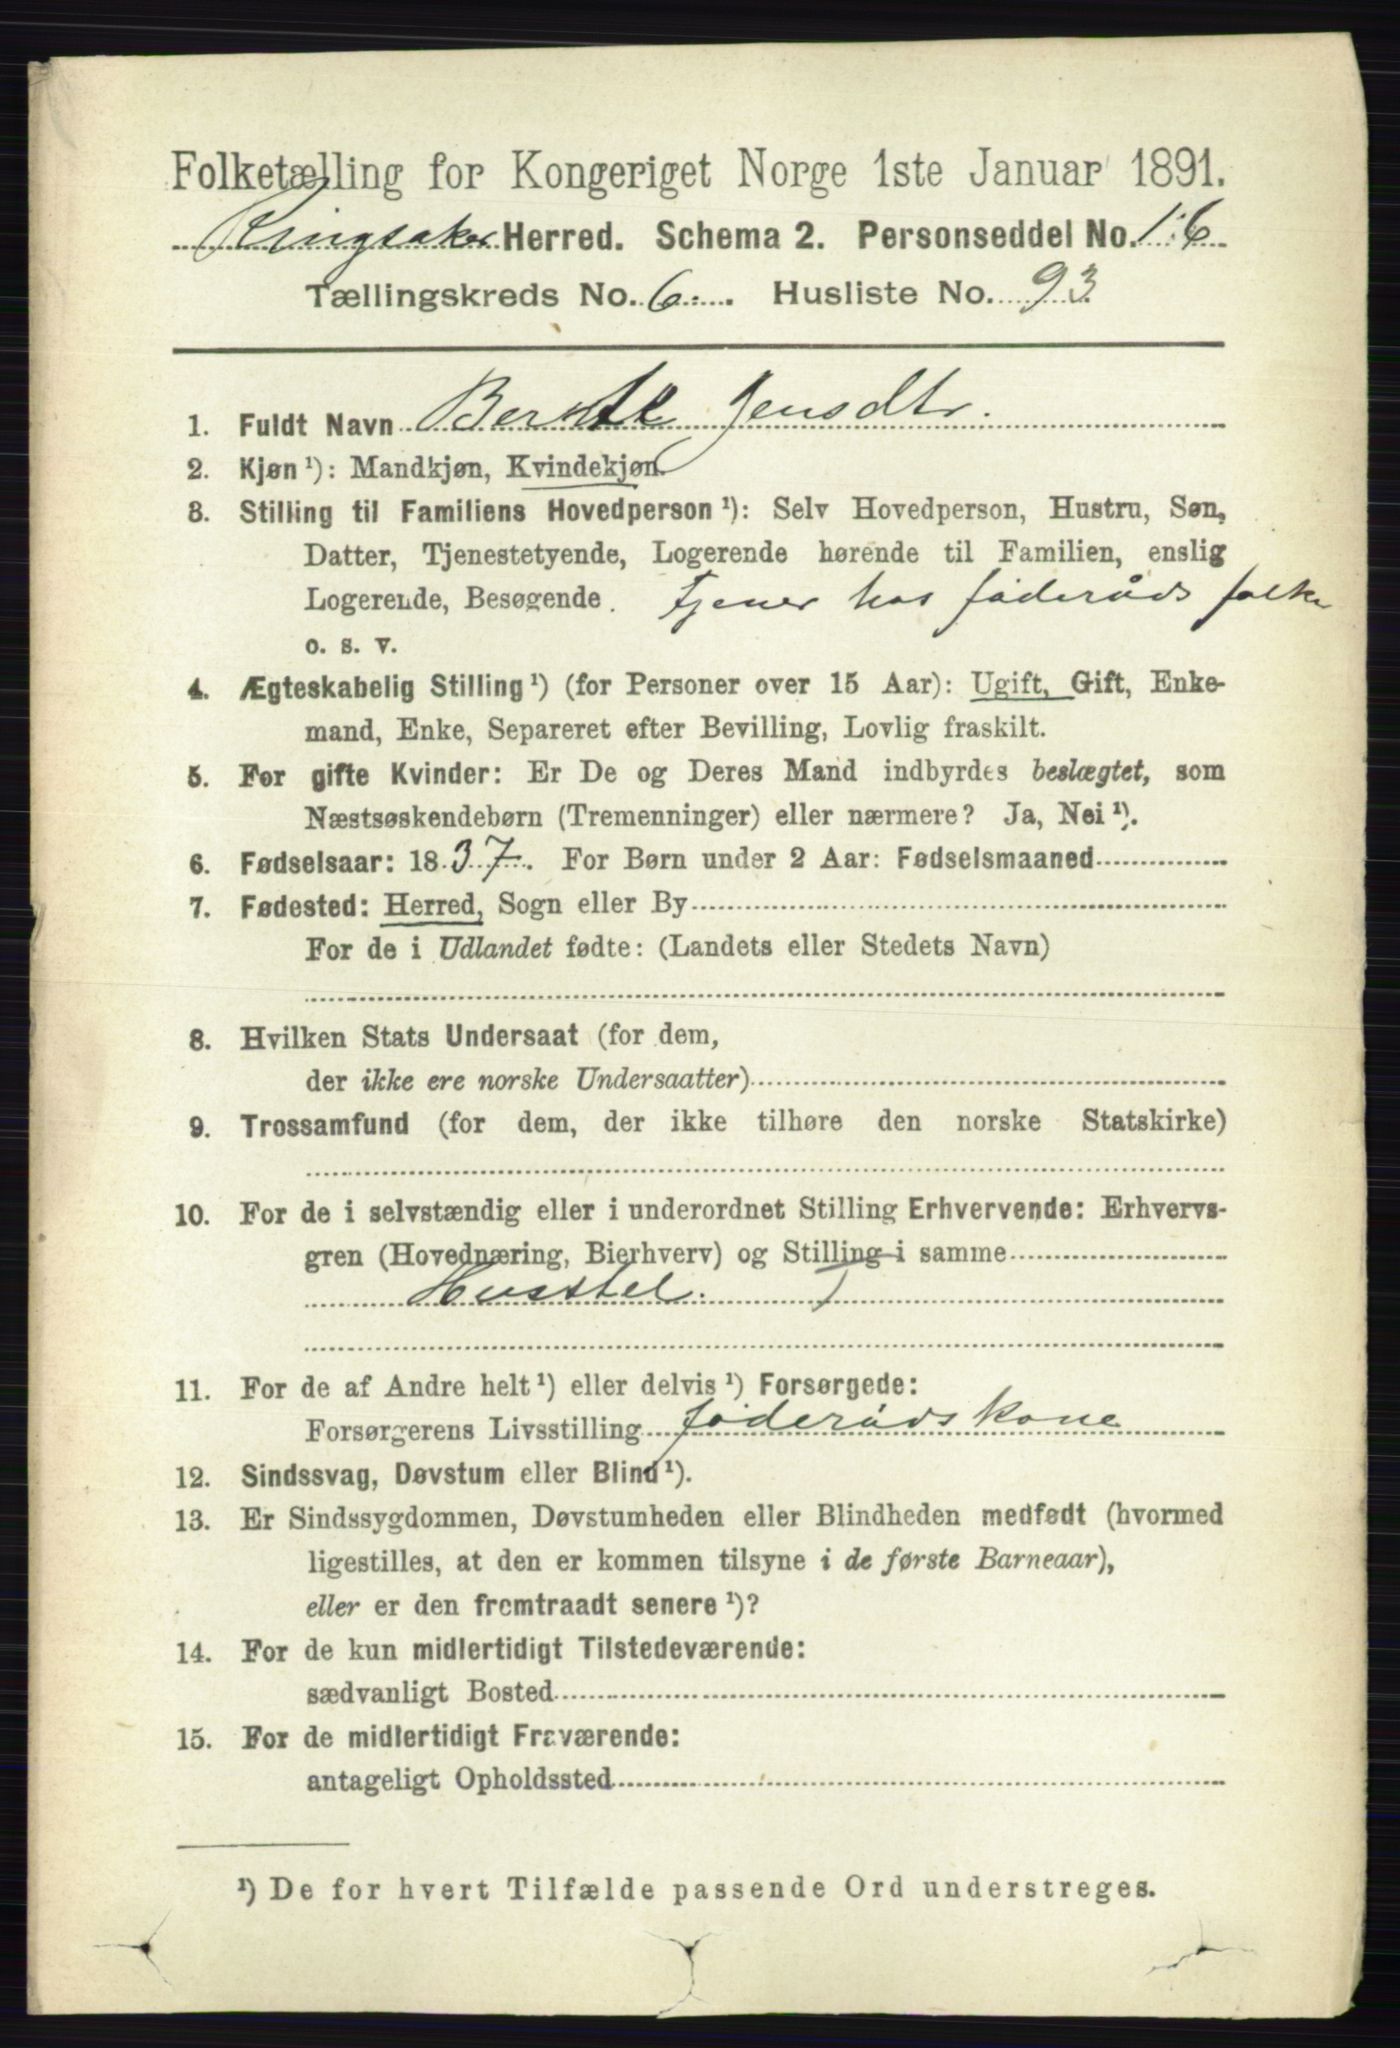 Folketælling for Kongeriget Norge 1ste Januar 1891.
Ringsaker Herred. Schema 2. Personseddel No. 16
Tællingskreds No. 6. Husliste No. 93.
1. Fuldt Navn Jensdtr.
2. Kjøn ¹): Mandkjøn, Kvindekjøn.
3. Stilling til Familiens Hovedperson ¹): Selv Hovedperson, Hustru, Søn,
Datter, Tjenestetyende, Logerende hørende til Familien, enslig
Logerende, Besøgende. tjener hos føderåds folke
o. s. v.
4. Ægteskabelig Stilling ¹) (for Personer over 15 Aar): Ugift, Gift, Enke-
mand, Enke, Separeret efter Bevilling, Lovlig fraskilt.
5. For gifte Kvinder: Er De og Deres Mand indbyrdes beslægtet, som
Næstsøskendebørn (Tremenninger) eller nærmere? Ja, Nei ¹).
6. Fødselsaar: 1837. For Børn under 2 Aar: Fødselsmaaned
7. Fødested: Herred, Sogn eller By
For de i Udlandet fødte: (Landets eller Stedets Navn)
8. Hvilken Stats Undersaat (for dem,
der ikke ere norske Undersaatter)
9. Trossamfund (for dem, der ikke tilhøre den norske Statskirke)
10. For de i selvstændig eller i underordnet Stilling Erhvervende: Erhvervs-
gren (Hovednæring, Bierhverv) og Stilling i samme
Husstel.
11. For de af Andre helt ¹) eller delvis ¹) Forsørgede:
Forsørgerens Livsstilling føderådskone
12. Sindssvag, Døvstum eller Blind ¹).
13. Er Sindssygdommen, Døvstumheden eller Blindheden medfødt (hvormed
ligestilles, at den er kommen tilsyne i de første Barneaar),
eller er den fremtraadt senere ¹)?
14. For de kun midlertidigt Tilstedeværende:
sædvanligt Bosted
15. For de midlertidigt Fraværende:
antageligt Opholdssted
¹) De for hvert Tilfælde passende Ord understreges.